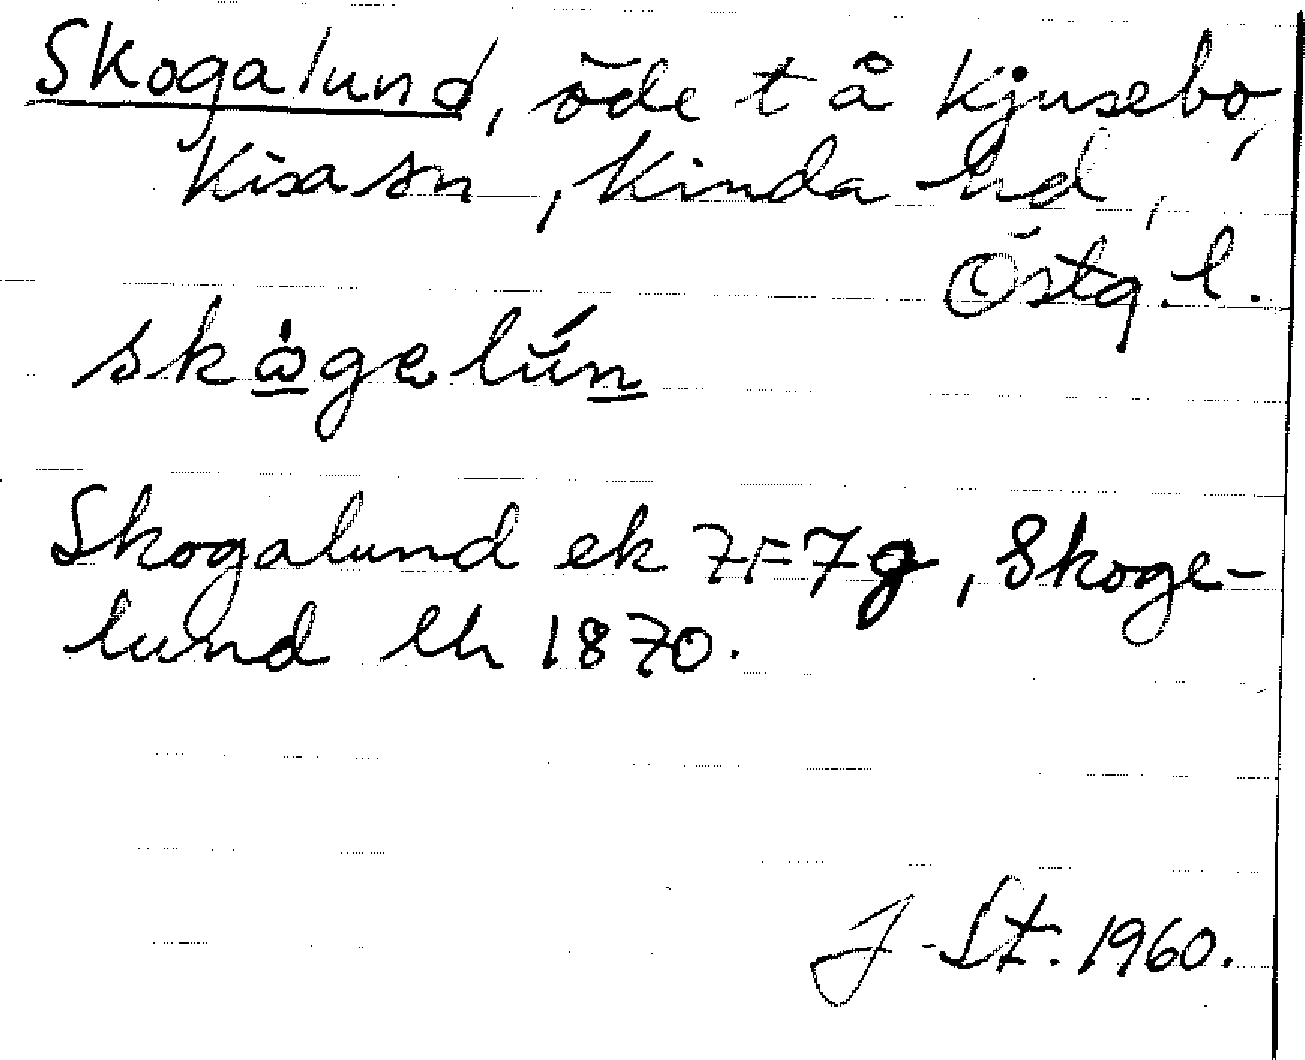 Skogalund, öde t å Kjusebo,
Kisa sn, Kinda hd,
Östg. l.
skògelún
Skogalund ek 7F7g, Skoge-
lund lh 1870.
J. St. 1960.